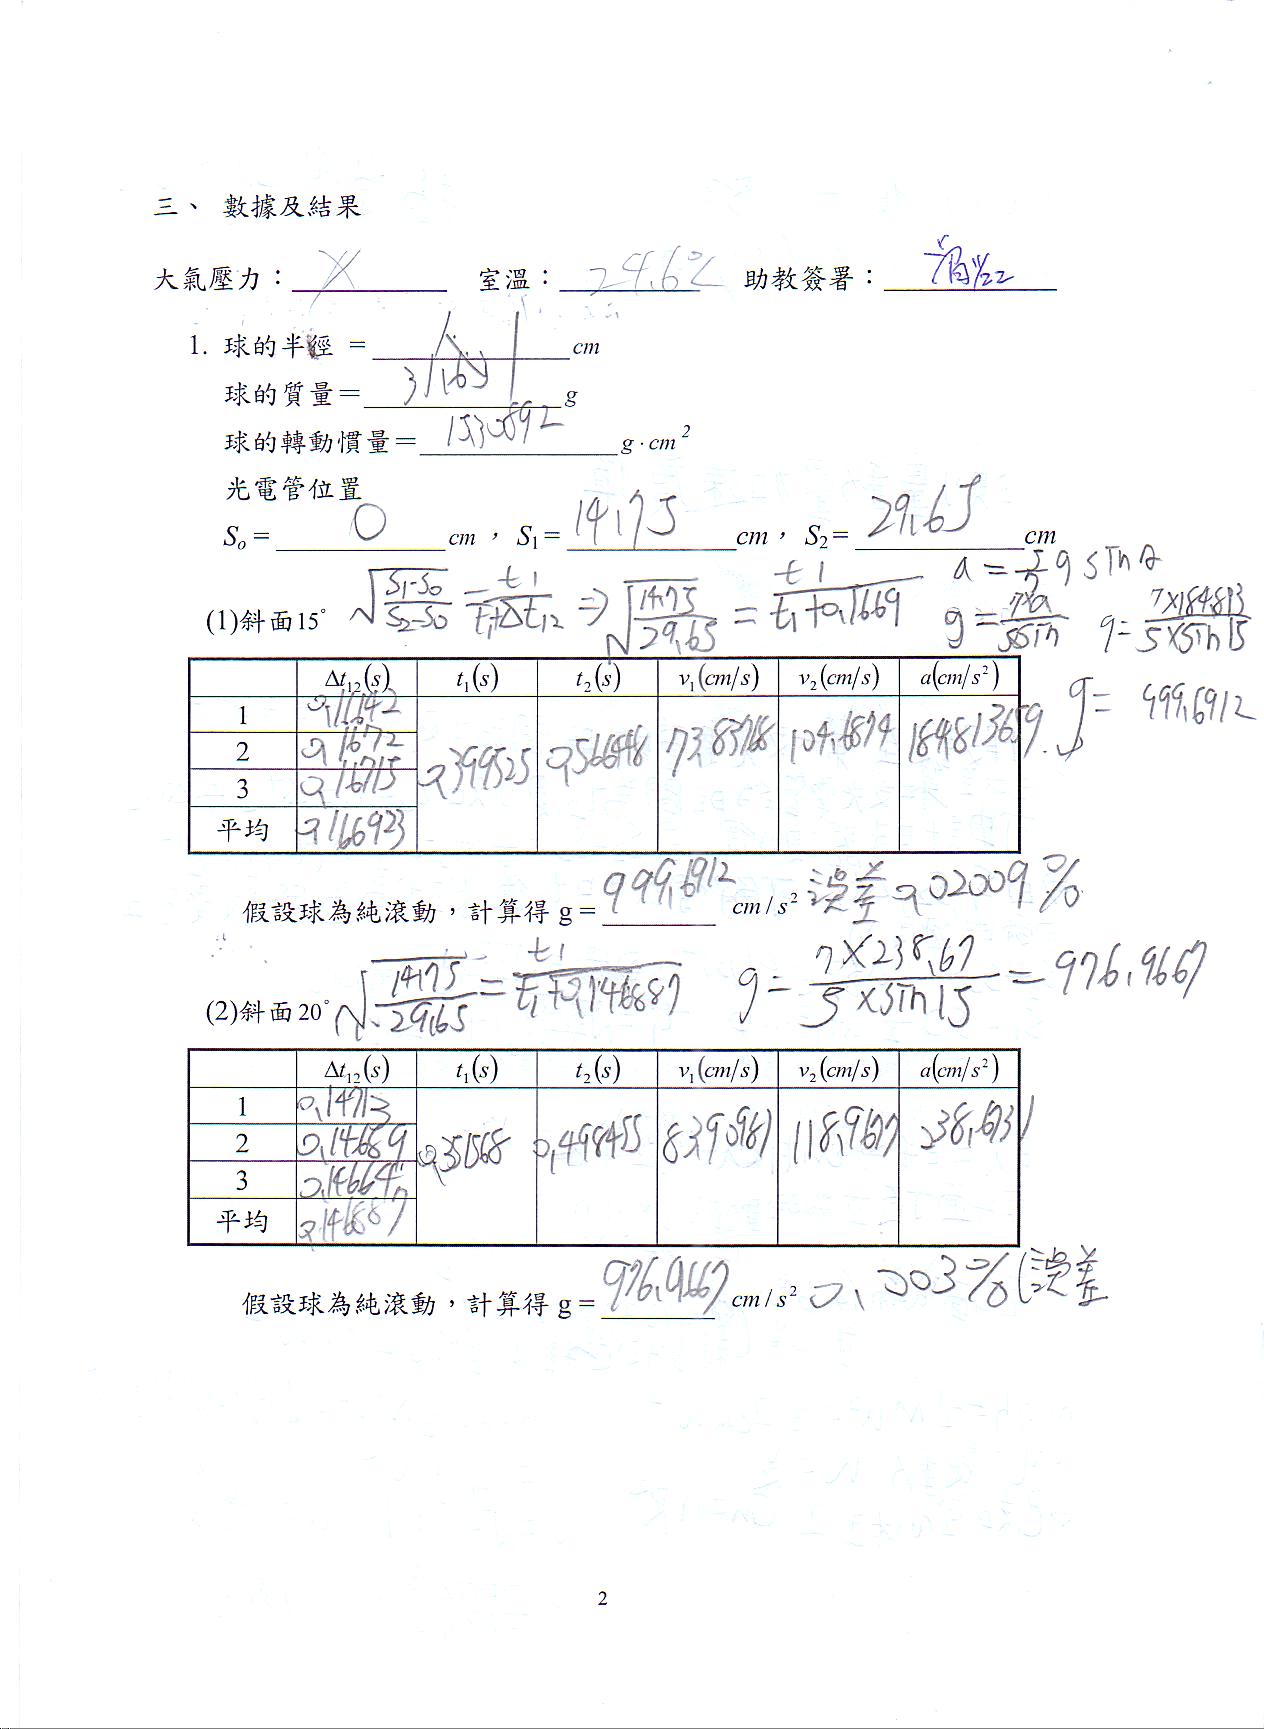 三、 數據及結果
大氣壓力： X 室溫： 24.6℃ 助教簽署：
1. 球的半徑 = cm
球的質量＝ g
球的轉動慣量＝ g·cm²
光電管位置
S₀ = 0 cm ， S₁ = 14.75 cm， S₂ = 29.65 cm
a = 5/7 g sin θ
(1)斜面15° √((S₁-S₀)/(S₂-S₀)) = t₁/(t₁+Δt₁₂) ⇒ √(14.75/29.65) = t₁/(t₁+0.1669) g = 7a/5sin g = 7×184.813/5×sin15
Δt₁₂(s) t₁(s) t₂(s) v₁(cm/s) v₂(cm/s) a(cm/s²)
g = 999.6912
1 0.399525 0.566448 73.83768 104.6874 184.813659
2 0.1672
3 0.16715
平均 0.166923
假設球為純滾動，計算得 g = 999.6912 cm/s² 誤差 0.02009%
(2)斜面20° √(14.75/29.65) = t₁/(t₁+0.146887) g = 7×238.67/5×sin15 = 976.9667
Δt₁₂(s) t₁(s) t₂(s) v₁(cm/s) v₂(cm/s) a(cm/s²)
1 0.14713 0.351568 0.498455 83.90981 118.9677 238.6731
2 0.14689
3 0.14664
平均 0.146887
假設球為純滾動，計算得 g = 976.9667 cm/s² 0.003%(誤差
2